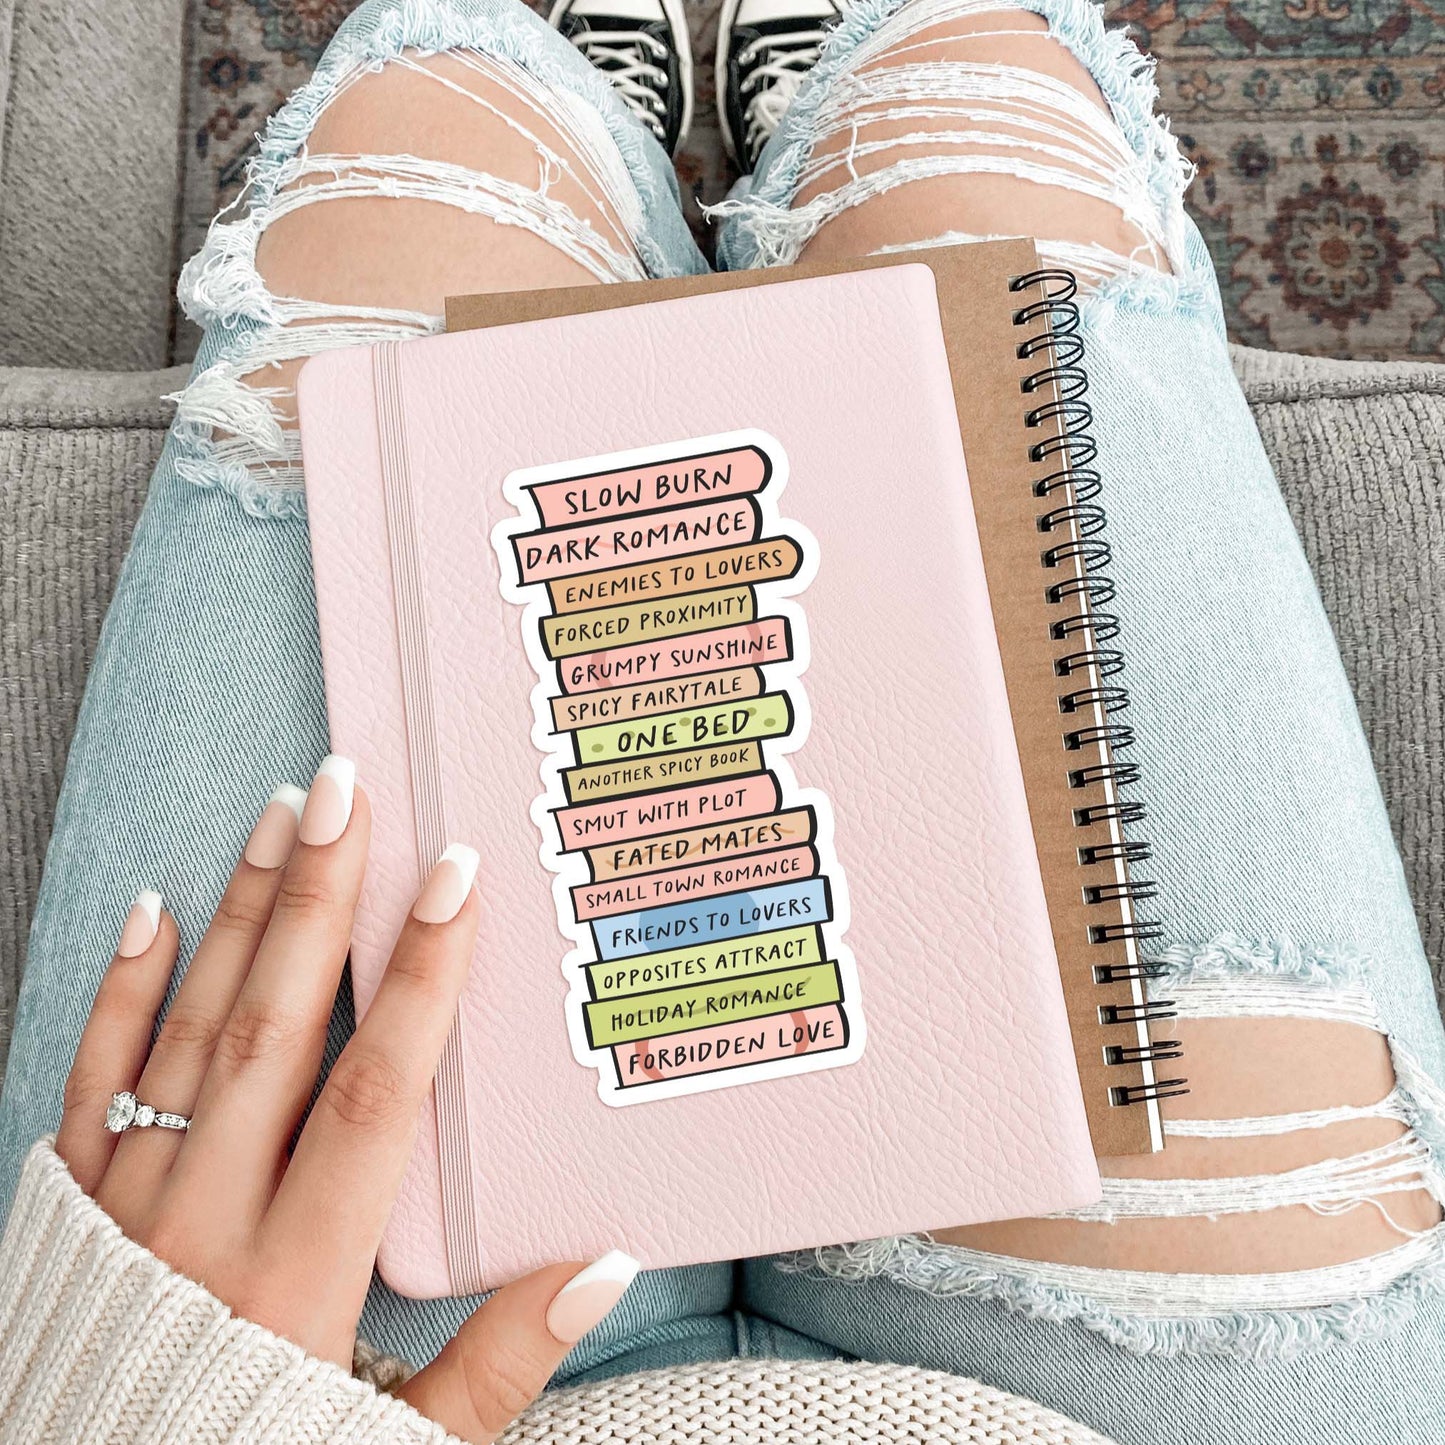 SLOW BURN
DARK ROMANCE
ENEMIES TO LOVERS
FORCED PROXIMITY
GRUMPY SUNSHINE
SPICY FAIRYTALE
ONE BED
ANOTHER SPICY BOOK
SMUT WITH PLOT
FATED MATES
SMALL TOWN ROMANCE
FRIENDS TO LOVERS
OPPOSITES ATTRACT
HOLIDAY ROMANCE
FORBIDDEN LOVE